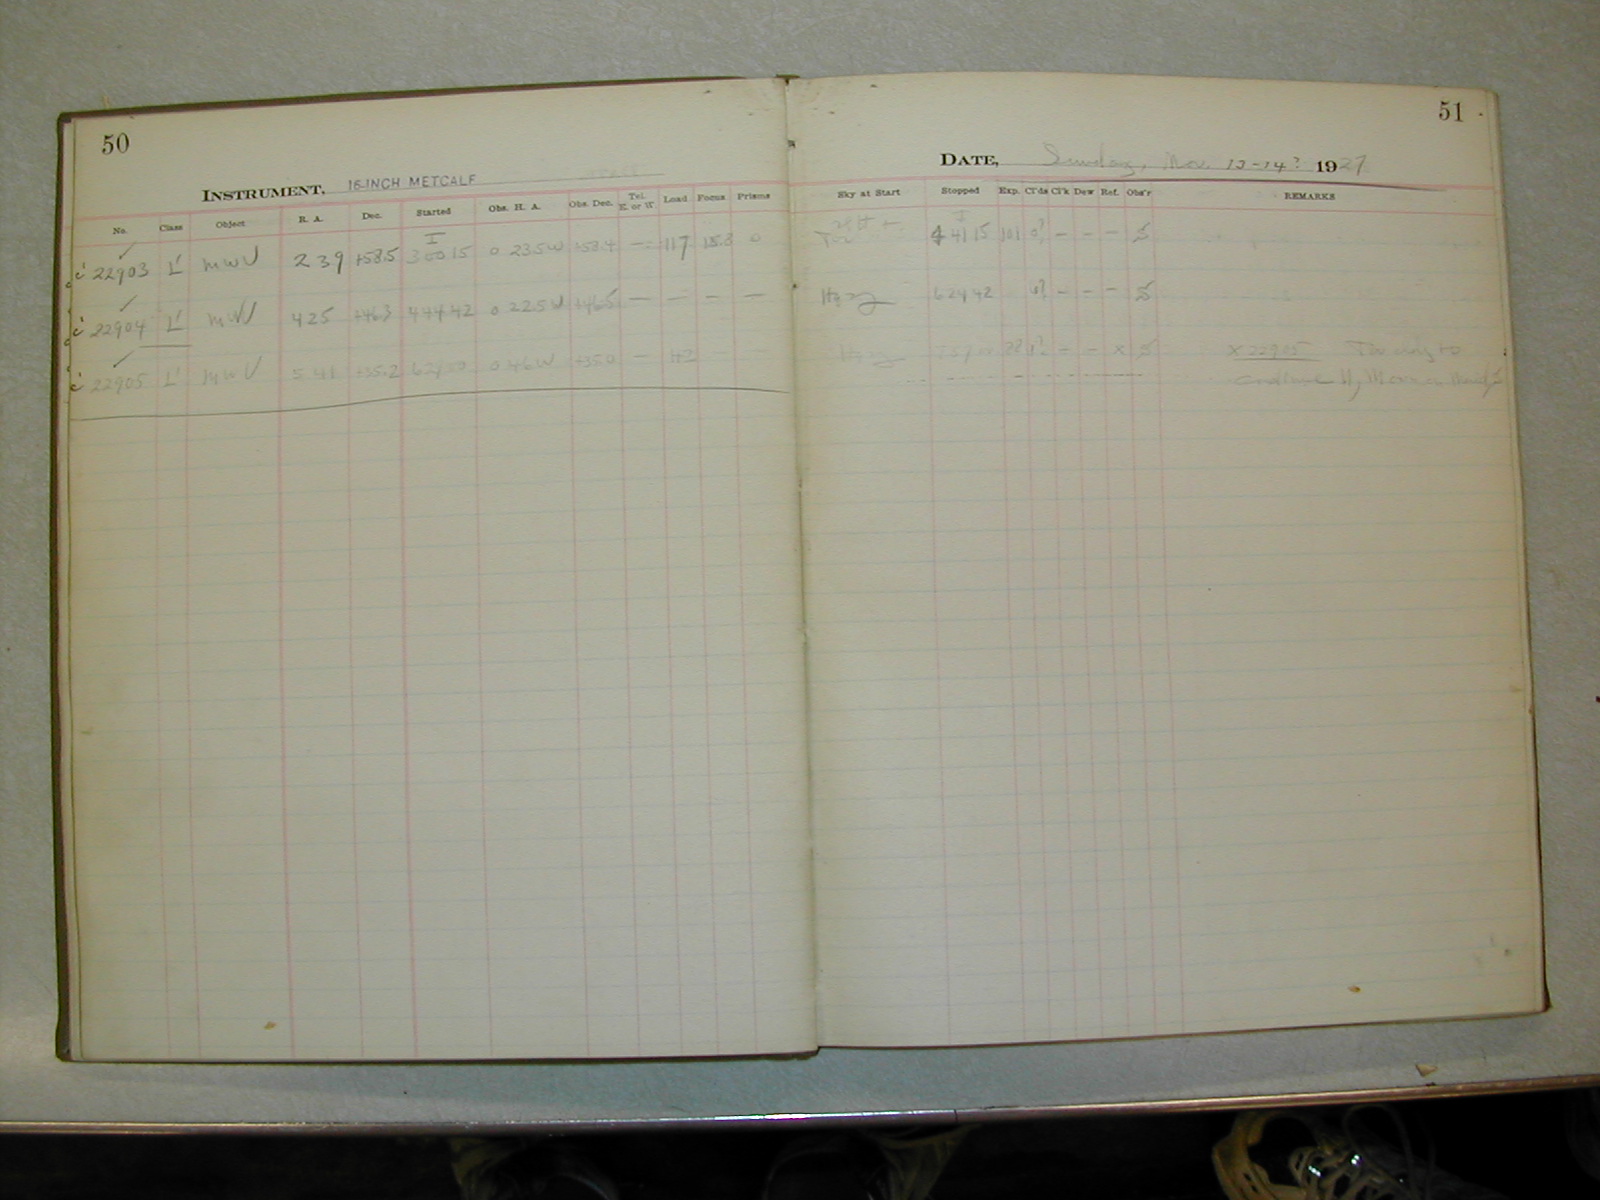 50
INSTRUMENT, 16-INCH METCALF
No. Class Object R. A. Dec. Started Obs. H. A. Obs. Dec. Tel. E. or W. Load Focus Prisms
I
c' 22903 L' MWU 2 39 +58.5 3 00 15 0 23.5W +58.4 — 117 15.8 0
c' 22904 L' MWU 4 25 +46.3 4 44 42 0 22.5W +46.5 — — — —
c' 22905 L' MWU 5 41 +35.2 0 46W +35.0 —
51
DATE, Sunday, Nov. 13-14? 1927
Sky at Start Stopped Exp. Cl'ds Cl'k Dew Ref. Obs'r REMARKS
I
4 41 15 101 0? – – – S
Hazy 6 24 42 – – – S
Hazy – – x S x 22905